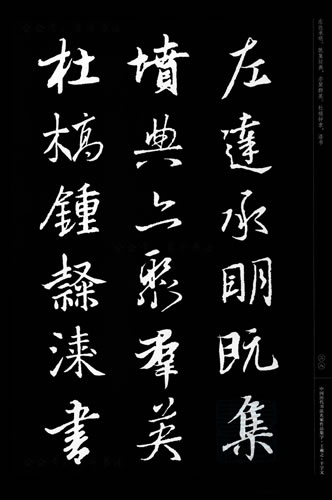 左達承明既集
墳典亦聚群英
杜槁鍾隸漆書